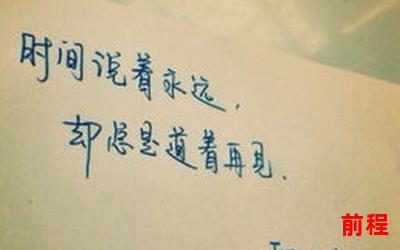 时间说着永远，
却总是道着再见．
前程